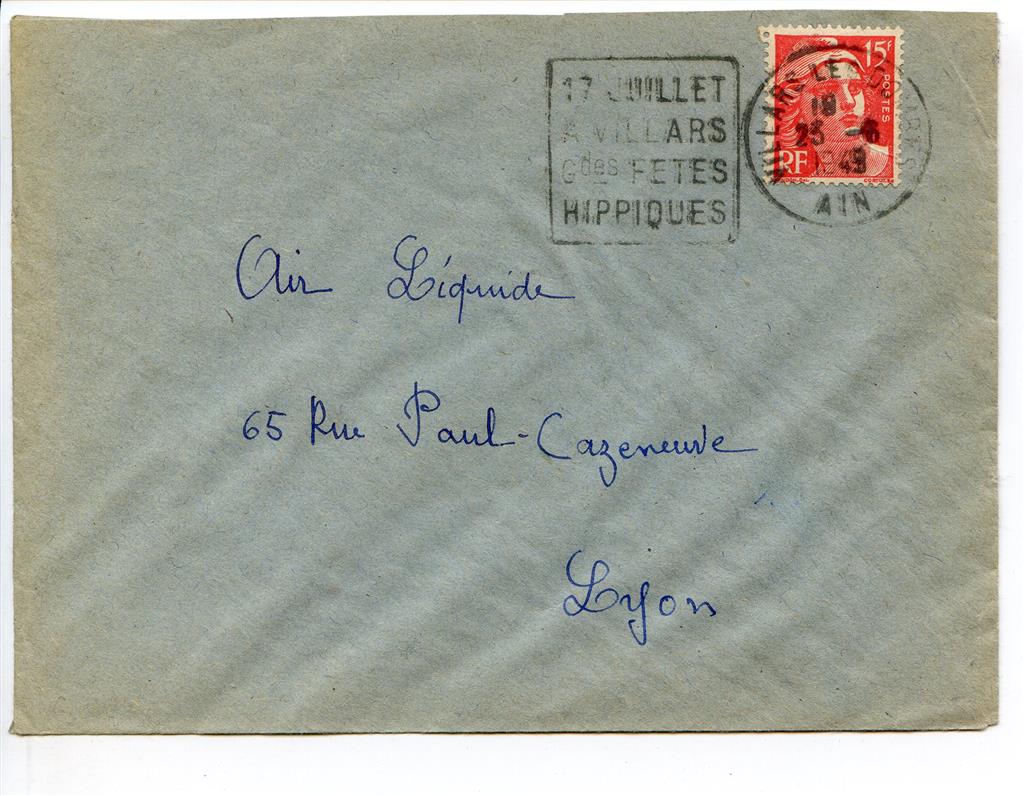 17 JUILLET
A VILLARS
Gdes FETES
HIPPIQUES
15F
POSTES
RF
VILLARS LES DOMBES
18
25 -6
1949
AIN
Air Liquide
65 Rue Paul-Cazeneuve
Lyon